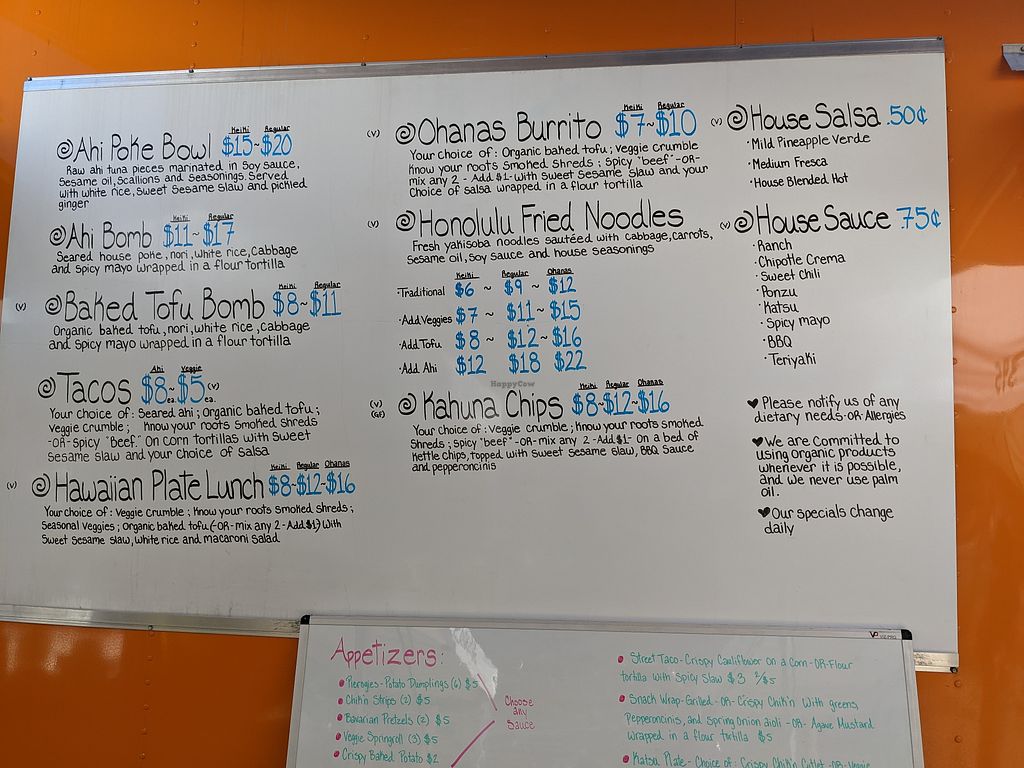 Keiki Regular
Ahi Poke Bowl $15~$20
Raw ahi tuna pieces marinated in Soy sauce,
Sesame oil, Scallions and Seasonings. Served
with white rice, Sweet Sesame slaw and pickled
ginger
Keiki Regular
Ahi Bomb $11~$17
Seared house poke, nori, white rice, Cabbage
and Spicy mayo wrapped in a flour tortilla
Keiki Regular
(V) Baked Tofu Bomb $8~$11
Organic baked tofu, nori, white rice, Cabbage
and Spicy mayo wrapped in a flour tortilla
Ahi Veggie
Tacos $8 ea. ~ $5 ea. (V)
Your choice of: Seared ahi; Organic baked tofu;
Veggie Crumble; Know your roots Smoked Shreds
-OR- Spicy "Beef." On Corn tortillas with Sweet
Sesame slaw and your choice of salsa
Keiki Regular Ohanas
(V) Hawaiian Plate Lunch $8~$12~$16
Your choice of: Veggie Crumble; Know your roots Smoked Shreds;
Seasonal Veggies; Organic baked tofu (-OR- mix any 2 - Add $1-) With
Sweet Sesame slaw, white rice and macaroni Salad
Keiki Regular
(V) Ohanas Burrito $7~$10
Your choice of: Organic baked tofu; Veggie crumble
Know your roots Smoked Shreds; Spicy "beef" -OR-
mix any 2 - Add $1- with Sweet Sesame Slaw and your
Choice of salsa wrapped in a flour tortilla
(V) Honolulu Fried Noodles
Fresh yakisoba noodles sautéed with cabbage, carrots,
Sesame oil, Soy sauce and house seasonings
Keiki Regular Ohanas
·Traditional $6 ~ $9 ~ $12
·Add Veggies $7 ~ $11~ $15
·Add Tofu $8 ~ $12~ $16
·Add Ahi $12 $18 $22
HappyCow
Keiki Regular Ohanas
(V) (GF) Kahuna Chips $8~$12~$16
Your choice of: Veggie crumble; Know your roots Smoked
Shreds; Spicy "beef" -OR- mix any 2 - Add $1- On a bed of
Kettle Chips, topped with Sweet Sesame Slaw, BBQ Sauce
and pepperoncinis
(V) House Salsa .50¢
·Mild Pineapple Verde
·Medium Fresca
·House Blended Hot
(V) House Sauce .75¢
·Ranch
·Chipotle Crema
·Sweet Chili
·Ponzu
·Katsu
·Spicy mayo
·BBQ
·Teriyaki
♥ Please notify us of any
dietary needs -OR- Allergies
♥ We are Committed to
using organic products
whenever it is possible,
and we never use palm
oil.
♥ Our specials change
daily
Appetizers:
• Pierogies - Potato Dumplings (6) $5
• Chik'n Strips (2) $5
• Bavarian Pretzels (2) $5
• Veggie Springroll (3) $5
• Crispy Baked Potato $2
Choose
any
Sauce
• Street Taco - Crispy Cauliflower on a Corn -OR- Flour
tortilla with Spicy Slaw $3 2/$5
• Snack Wrap - Grilled -OR- Crispy Chik'n With greens,
Pepperoncinis, and Spring Onion aioli -OR- Agave Mustard
Wrapped in a flour tortilla $5
• Katsu Plate - Choice of: Crispy Chik'n Cutlet -OR- Veggie